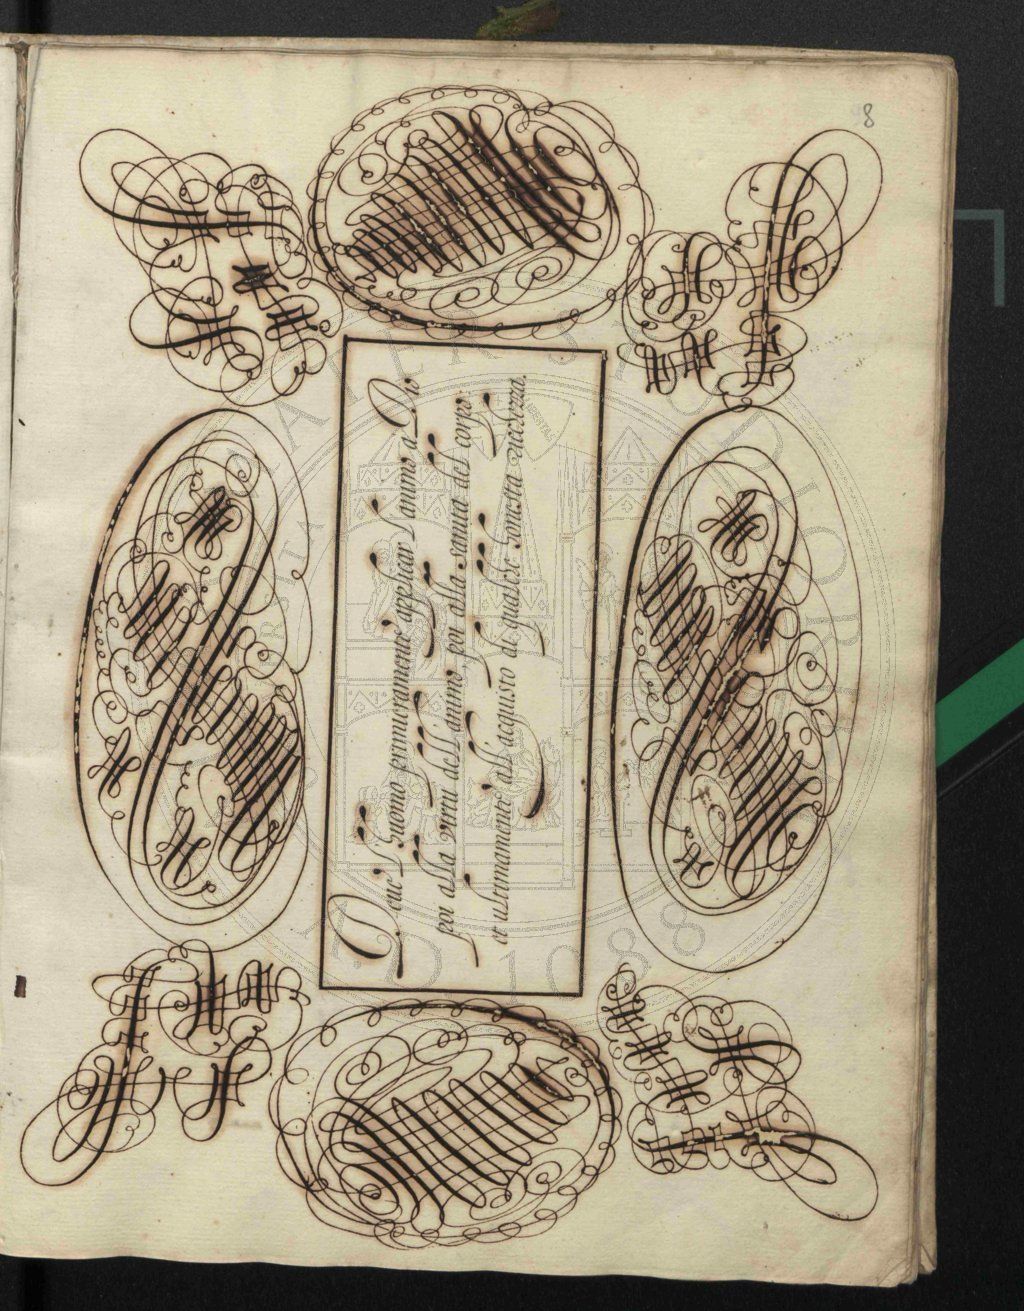 8
Deue l'huomo primieramente applicar l'animo a Dio
poi alla virtù dell'animo, poi alla sanità del corpo
et ultimamente all'acquisto di qualche honesta ricchezza.